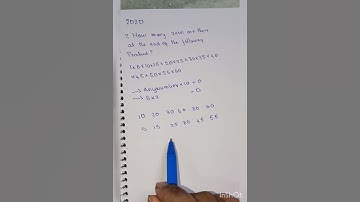 2020
? How many zeros are there
at the end of the following
Product?
1×5×10×15×20×25×30×35×40
×45×50×55×60
→ Any number×10 = 0
→ 5×2 = 0
10 20 30 40 50 60
5 15 25 35 45 55
InShOt